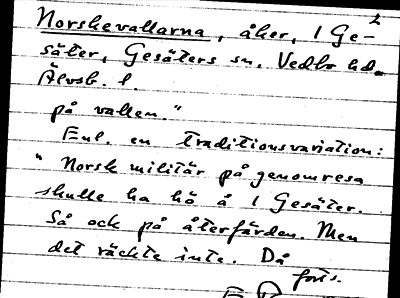 2
Norskevallarna, åker, 1 Ge-
säter, Gesäters sn. Vedbo hd.
Älvsb. l.
på vallen."
Enl. en traditionsvariation:
" Norsk militär på genomresa
skulle ha hö å 1 Gesäter.
Så ock på återfärden. Men
det räckte inte. Då
forts.